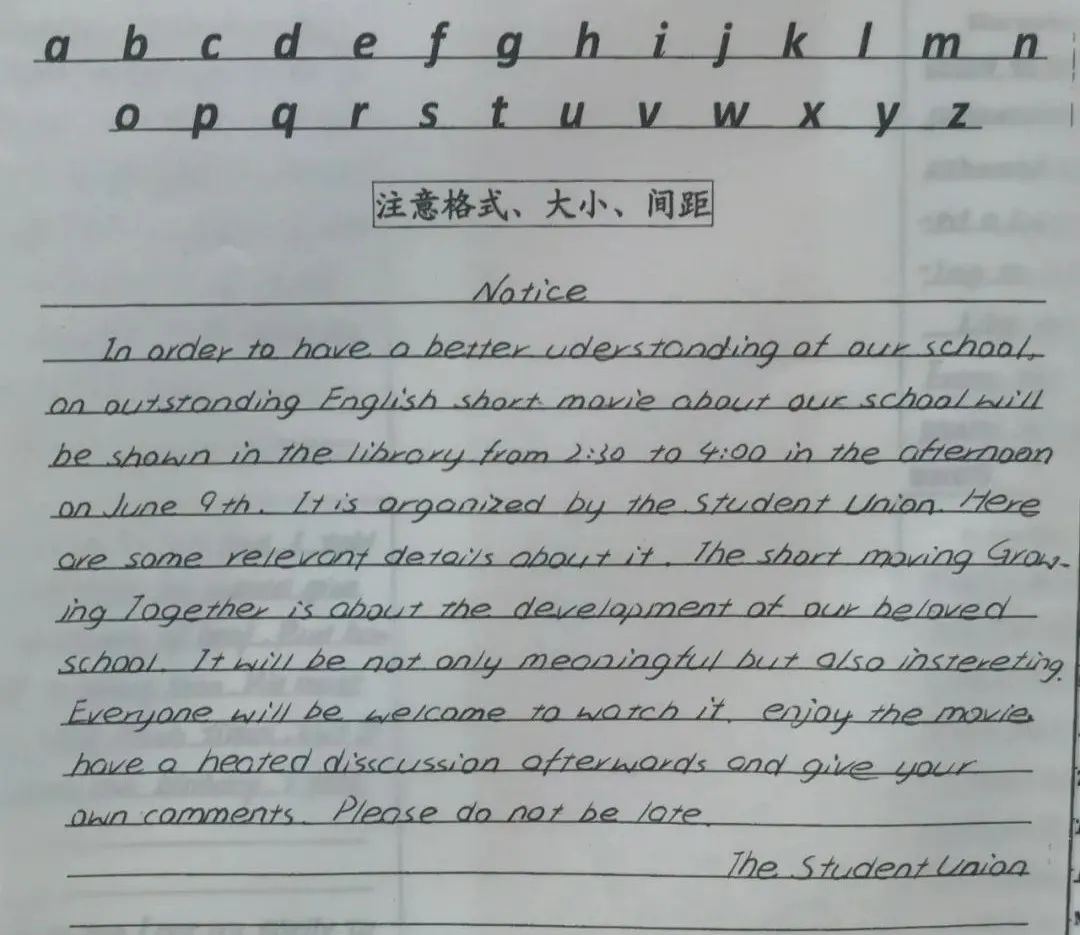 a b c d e f g h i j k l m n
o p q r s t u v w x y z
注意格式、大小、间距
Notice
In order to have a better uderstanding of our school,
an outstanding English short movie about our school will
be shown in the library from 2:30 to 4:00 in the afternoon
on June 9th. It is organized by the Student Union. Here
are some relevant details about it. The short moving Grow-
ing Together is about the development of our beloved
school. It will be not only meaningful but also instereting.
Everyone will be welcome to watch it, enjoy the movie,
have a heated disscussion afterwards and give your
own comments. Please do not be late.
The Student Union